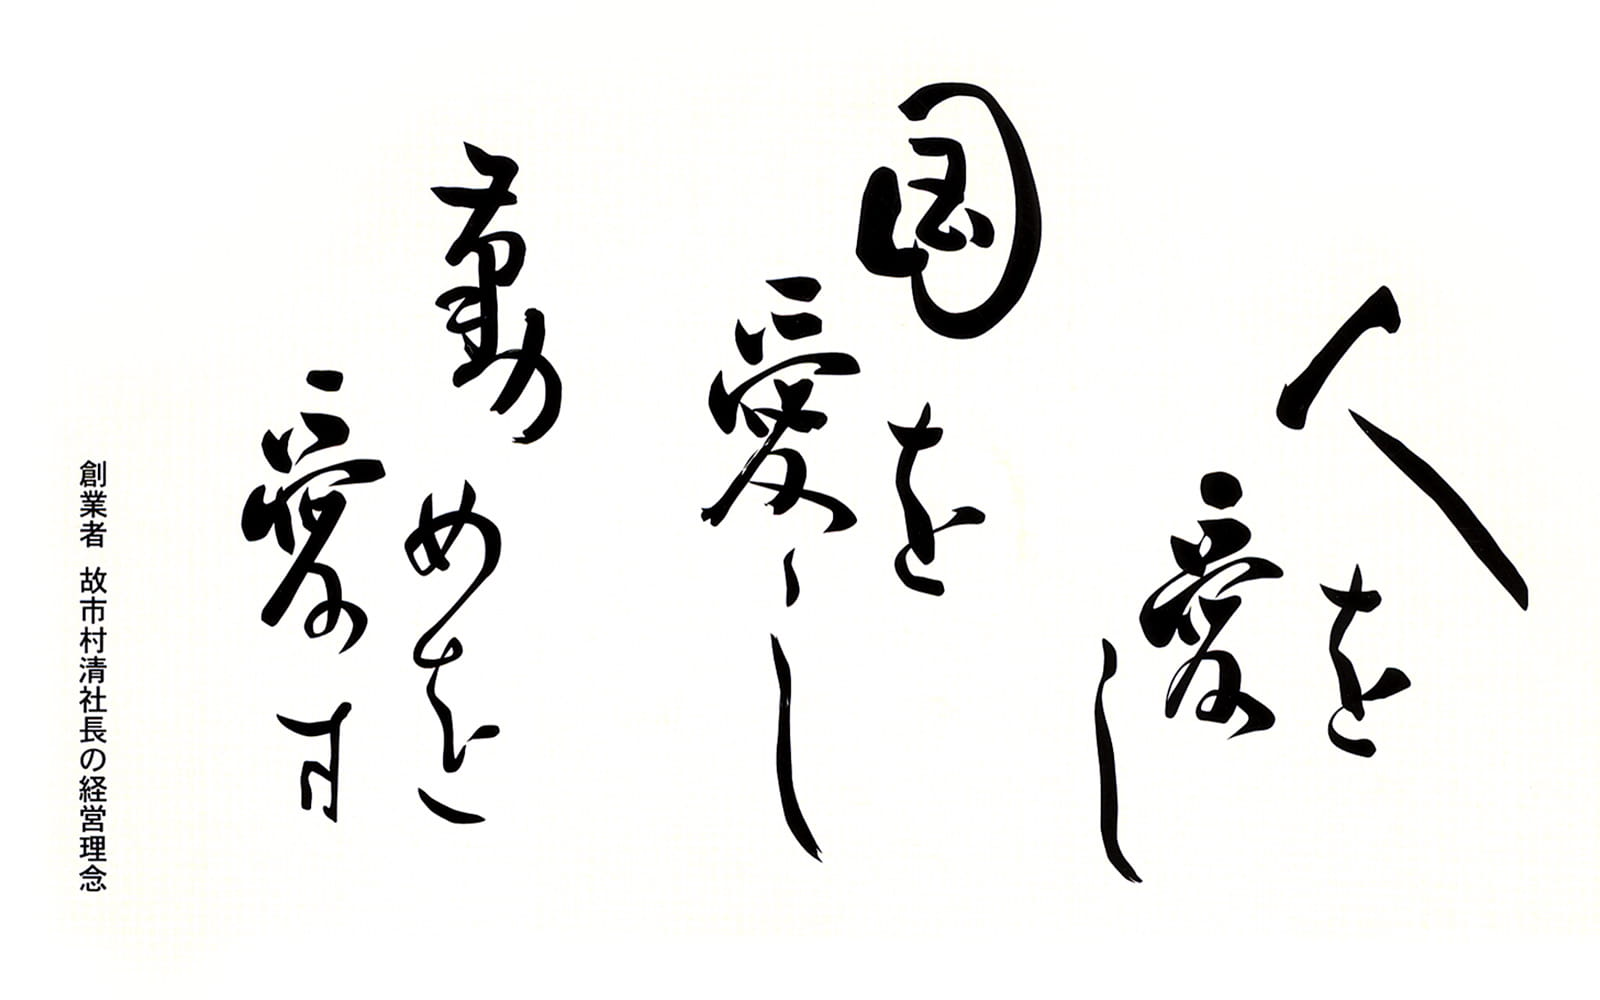 人を
愛し
国を
愛し
勤めを
愛す
創業者 故市村清社長の経営理念